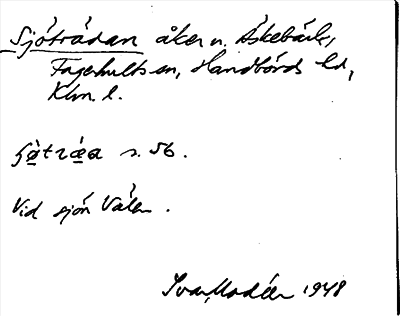 Sjöträdan åker u. Äskebäck,
Fagerhults sn, Handbörds hd,
Klm. l.
s. 56.
Vid sjön Välen.
Ivar Modéer 1948